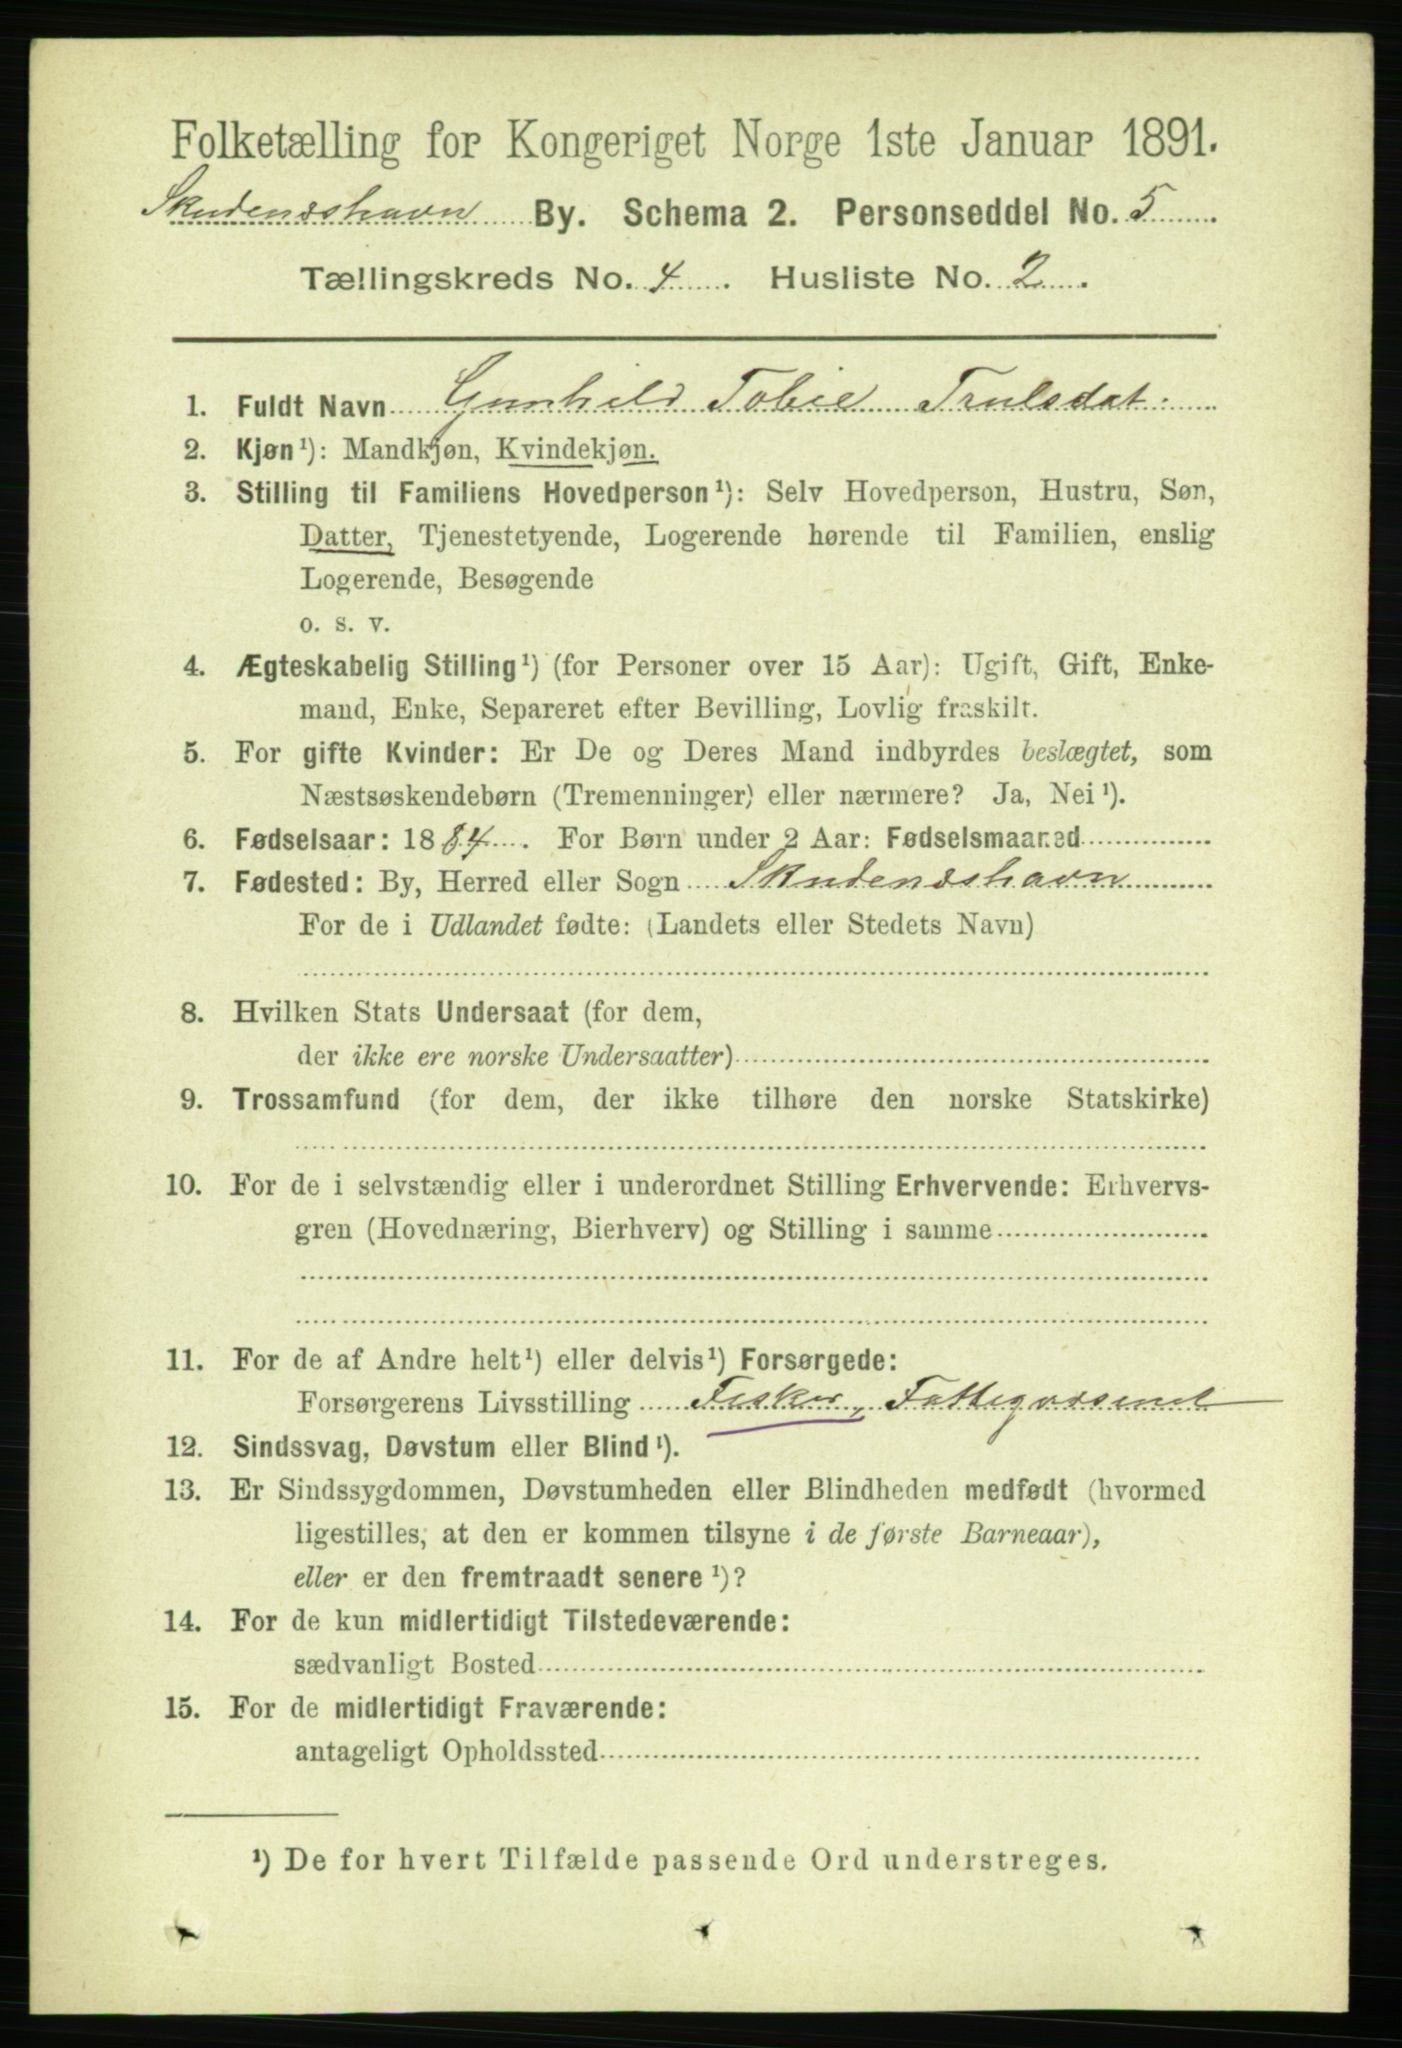 Folketælling for Kongeriget Norge 1ste Januar 1891.
Skudeneshavn By. Schema 2. Personseddel No. 5
Tællingskreds No. 4. Husliste No. 2.
1. Fuldt Navn Gunhild Tobie Trulsdat.
2. Kjøn¹): Mandkjøn, Kvindekjøn.
3. Stilling til Familiens Hovedperson¹): Selv Hovedperson, Hustru, Søn,
Datter, Tjenestetyende, Logerende hørende til Familien, enslig
Logerende, Besøgende
o. s. v.
4. Ægteskabelig Stilling¹) (for Personer over 15 Aar): Ugift, Gift, Enke-
mand, Enke, Separeret efter Bevilling, Lovlig fraskilt.
5. For gifte Kvinder: Er De og Deres Mand indbyrdes beslægtet, som
Næstsøskendebørn (Tremenninger) eller nærmere? Ja, Nei¹).
6. Fødselsaar: 1884. For Børn under 2 Aar: Fødselsmaaned
7. Fødested: By, Herred eller Sogn Skudeneshavn
For de i Udlandet fødte: (Landets eller Stedets Navn)
8. Hvilken Stats Undersaat (for dem,
der ikke ere norske Undersaatter)
9. Trossamfund (for dem, der ikke tilhøre den norske Statskirke)
10. For de i selvstændig eller i underordnet Stilling Erhvervende: Erhvervs-
gren (Hovednæring, Bierhverv) og Stilling i samme
11. For de af Andre helt¹) eller delvis¹) Forsørgede:
Forsørgerens Livsstilling Fisker, Fattigvæsenet
12. Sindssvag, Døvstum eller Blind¹).
13. Er Sindssygdommen, Døvstumheden eller Blindheden medfødt (hvormed
ligestilles, at den er kommen tilsyne i de første Barneaar),
eller er den fremtraadt senere¹)?
14. For de kun midlertidigt Tilstedeværende:
sædvanligt Bosted
15. For de midlertidigt Fraværende:
antageligt Opholdssted
¹) De for hvert Tilfælde passende Ord understreges.